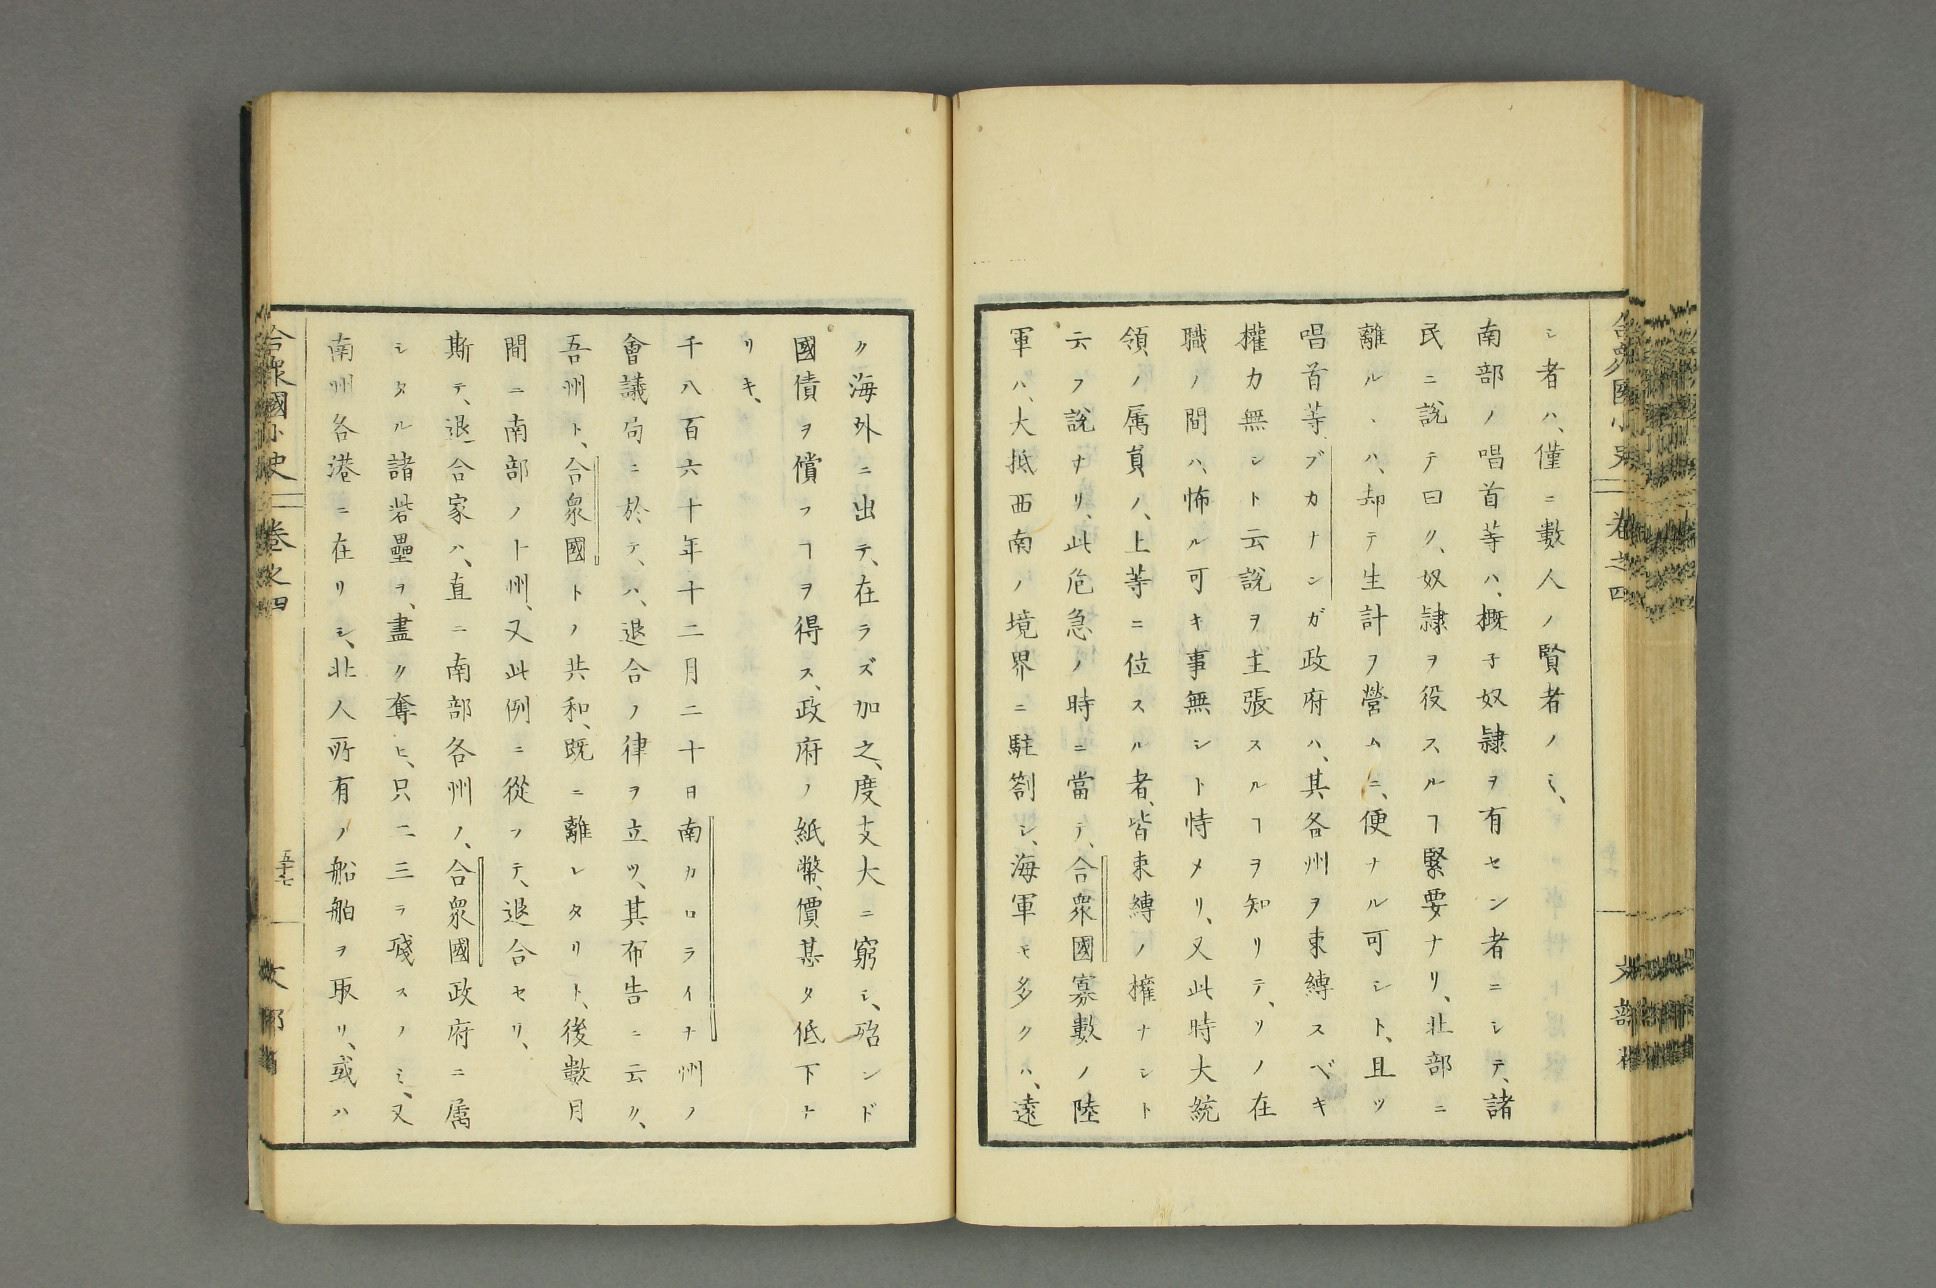 シ者ハ、僅ニ數人ノ賢者ノミ、
南部ノ唱首等ハ、概子奴隷ヲ有セン者ニシテ、諸
民ニ說テ曰ク、奴隷ヲ役スルヿ緊要ナリ、北部ニ
離ルヽハ、却テ生計ヲ營ムニ、便ナル可シト、且ツ
唱首等、ブカナンガ政府ハ、其各州ヲ束縛スベキ
權力無シト云說ヲ主張スルヿヲ知リテ、ソノ在
職ノ間ハ、怖ル可キ事無シト恃メリ、又此時大統
領ノ属員ノ、上等ニ位スル者、皆束縛ノ權ナシト
云フ說ナリ、此危急ノ時ニ當テ、合衆國寡數ノ陸
軍ハ、大抵西南ノ境界ニ駐劄シ、海軍モ多クハ、遠
ク海外ニ出テ、在ラズ加之、度支大ニ窮シ、殆ンド
國債ヲ償フヿヲ得ス、政府ノ紙幣、價甚タ低下ナ
リキ、
千八百六十年十二月二十日南カロライナ州ノ
會議局ニ於テハ、退合ノ律ヲ立ツ、其布告ニ云ク、
吾州ト、合衆國トノ共和、既ニ離レタリト、後數月
間ニ南部ノ十州、又此例ニ從フテ、退合セリ、
斯テ、退合家ハ、直ニ南部各州ノ、合衆國政府ニ属
シタル諸砦壘ヲ、盡ク奪ヒ、只二三ヲ殘スノミ、又
南州各港ニ在リシ、北人所有ノ船舶ヲ取リ、或ハ
合衆國小史 卷之四
五十七
文部省
合衆國小史 卷之四
文部省